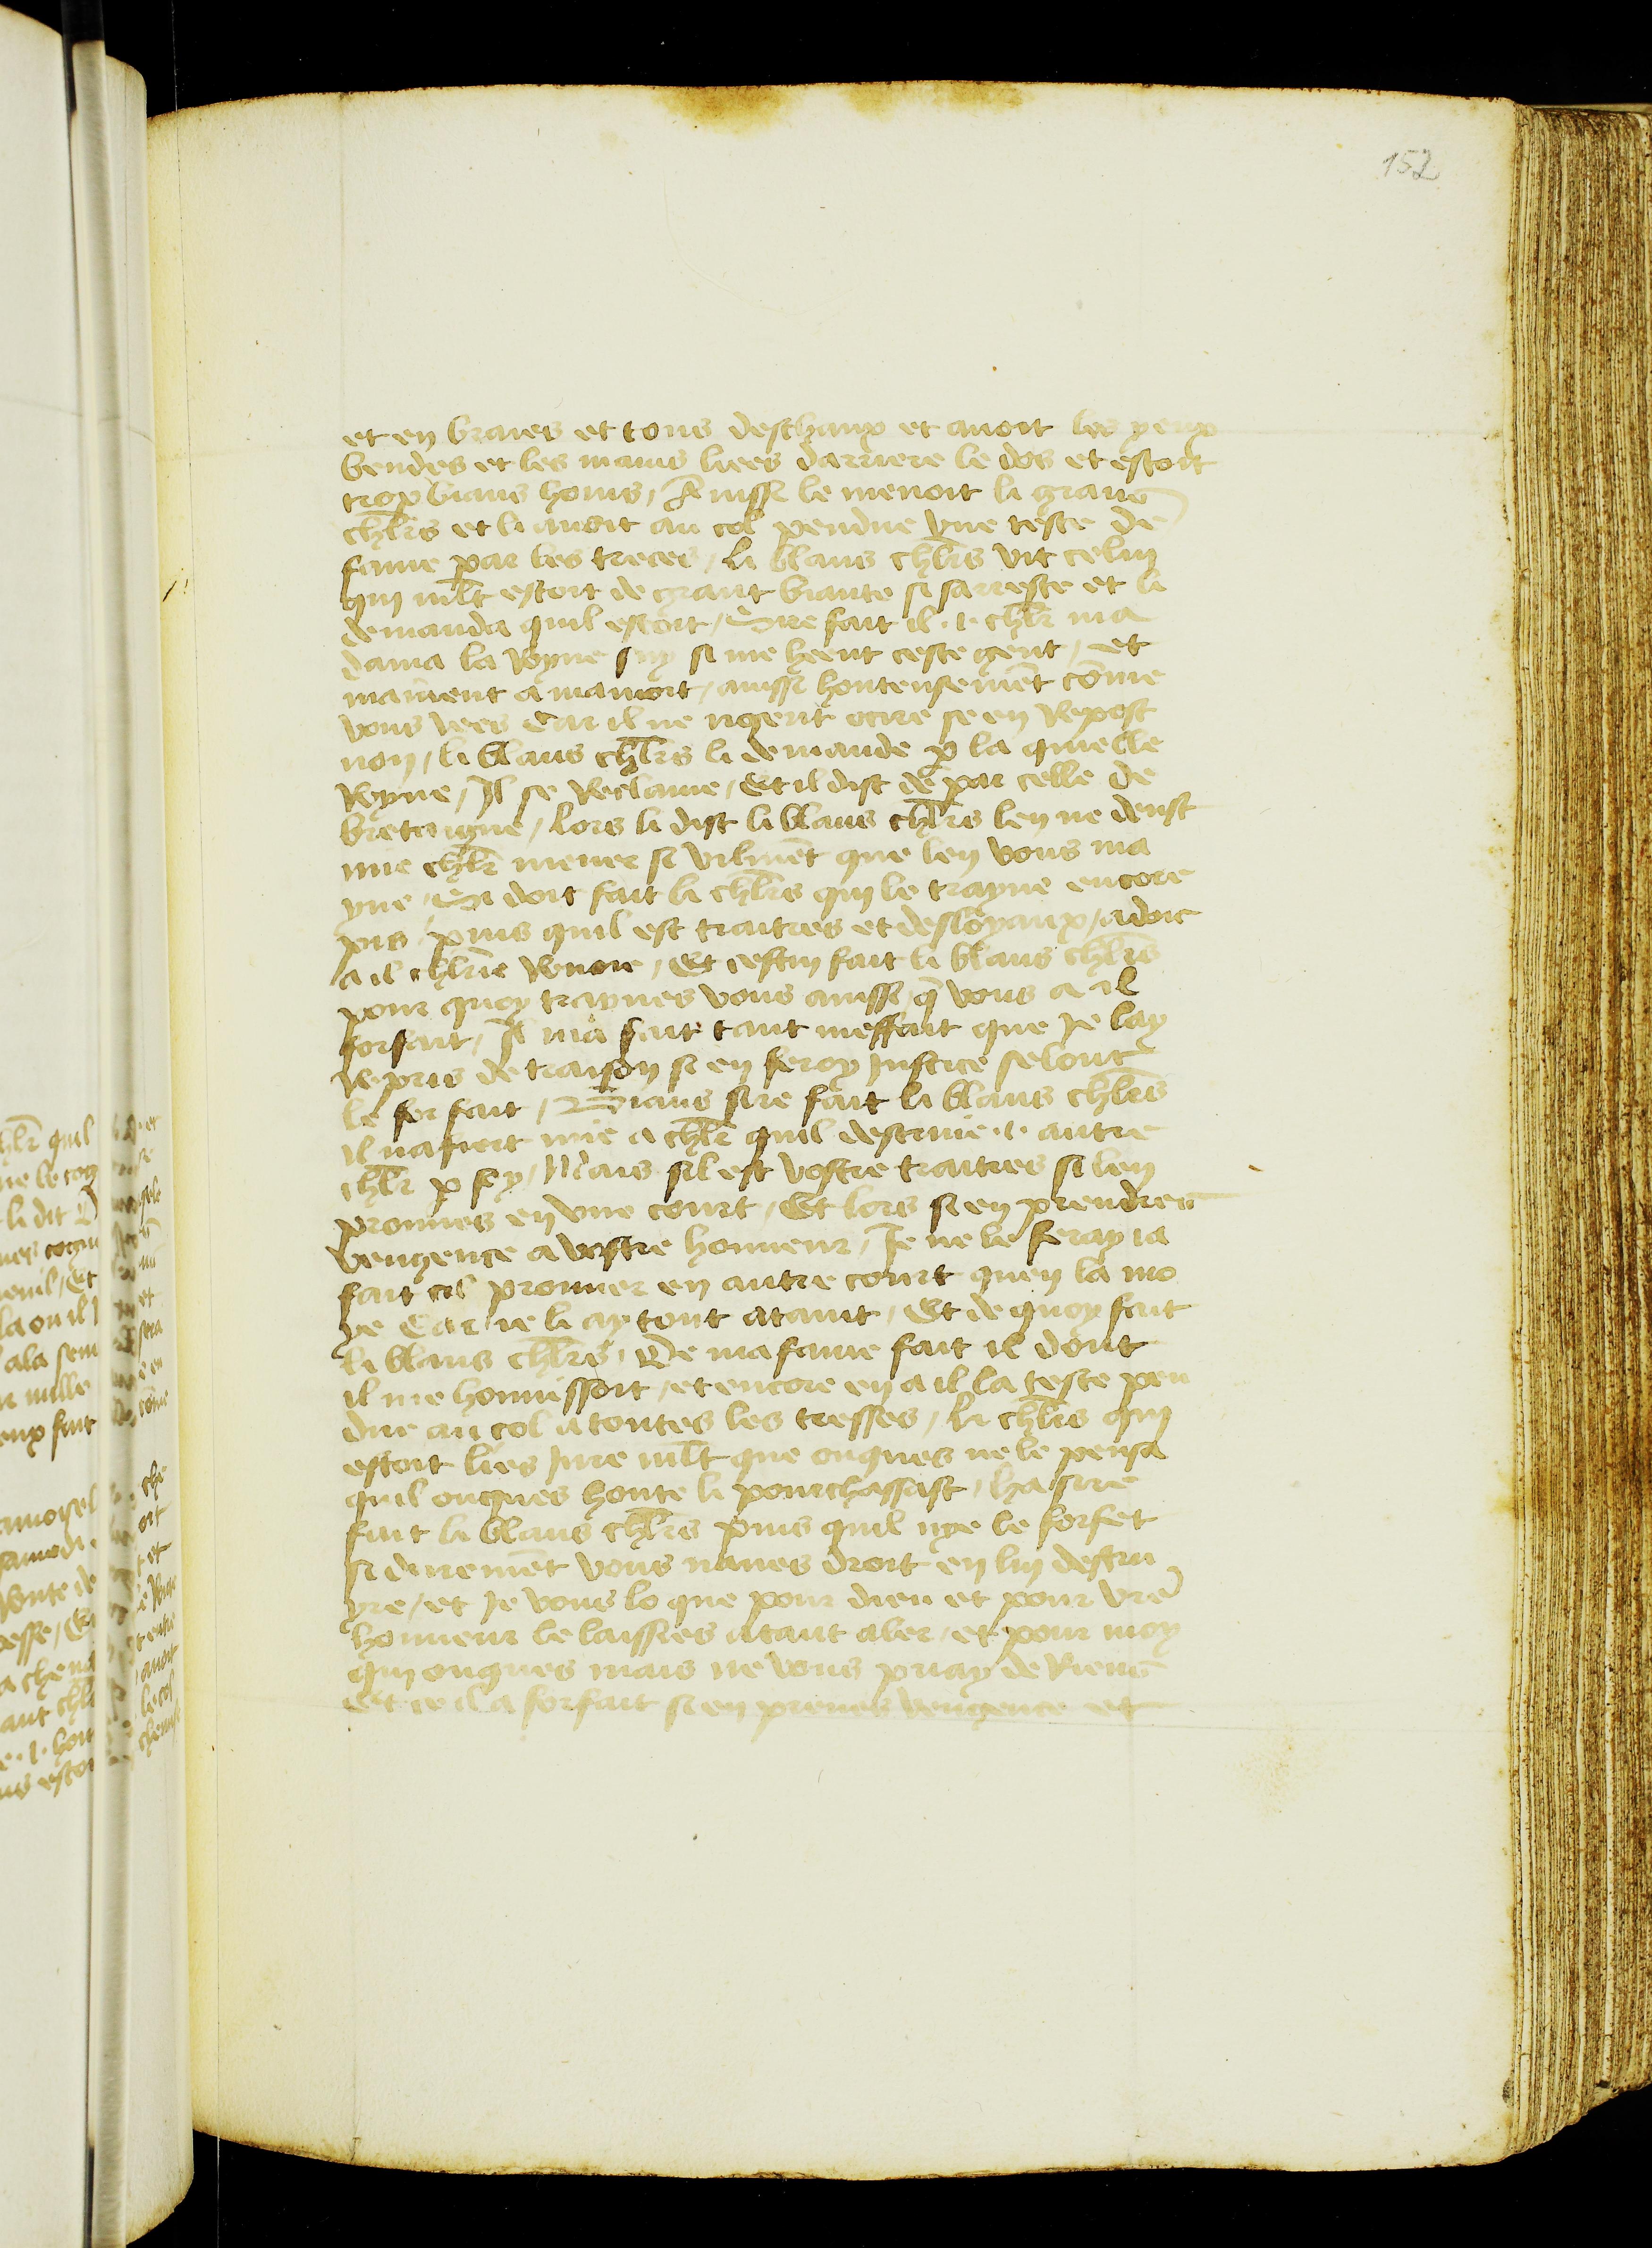 152
et en braies et tous deschaux et auoit les yeux
bendes et les mains liees darriere le dos et estoit
trop biaus homs / Ainssi le menoit li grans
chlrs et li auoit au col pendue vne teste de
fame par les treces / li blans chlrs vit celui
qui mlt estoit de grant biaute si sarreste et li
demanda quil estoit / Sire fait il .i. chlr ma
dama la Royne suy si me heent ceste gent / et
mainent a ma mort / aussi honteusemēt cōme
vous vees Car il ne mosent ocire se en Repost
non / li blans chlrs li demande p la quelle
Royne / Il se Reclaime / Et il dist de par celle de
bretaigne / lors li dist li blans chlrs len ne deust
mie chlr mener si vilmēt que len vous ma
yne / Si doit fait li chlrs qui le trayne encore
pis / puis quil est traitres et desloyaux / adonc
a il chlrie Renoie / Et cestui fait li blans chlrs
pour quoy traynes vous aussi / q̄ vous a il
forfait / Il ma fait tant meffait que Je lay
Repris de traison si en feroy Justice selont
le for fait / Biaus sire fait li blans chlrs
il nafiert mie a chlr quil destruie .i. autre
chlr p sey / Mais sil est vostre traitres si len
prouues en vne court / Et lors si en prendres
vengence a vostre honneur / Je ne le feray ia
fait cil prouuer en autre court quen la mo
ye Car ie li ay tout ataint / Et de quoy fait
li blans chlrs / De ma fame fait il dont
il me honnissoit / et encore en a il la teste pen
due au col a toutes les tresses / li chlrs qui
estoit lies Jure mlt que onques ne le pensa
quil onques honte li pourchassast / ha sire
fait li blans chlrs puis quil nye le forfet
si durement vous naues droit en lui destru
yre / et Je vous lo que pour dieu et pour vrē
honneur le laissies atant aler / et pour moy
qui onques mais ne vous priay de Riens
Et ce il a forfait si en prenes vengence et